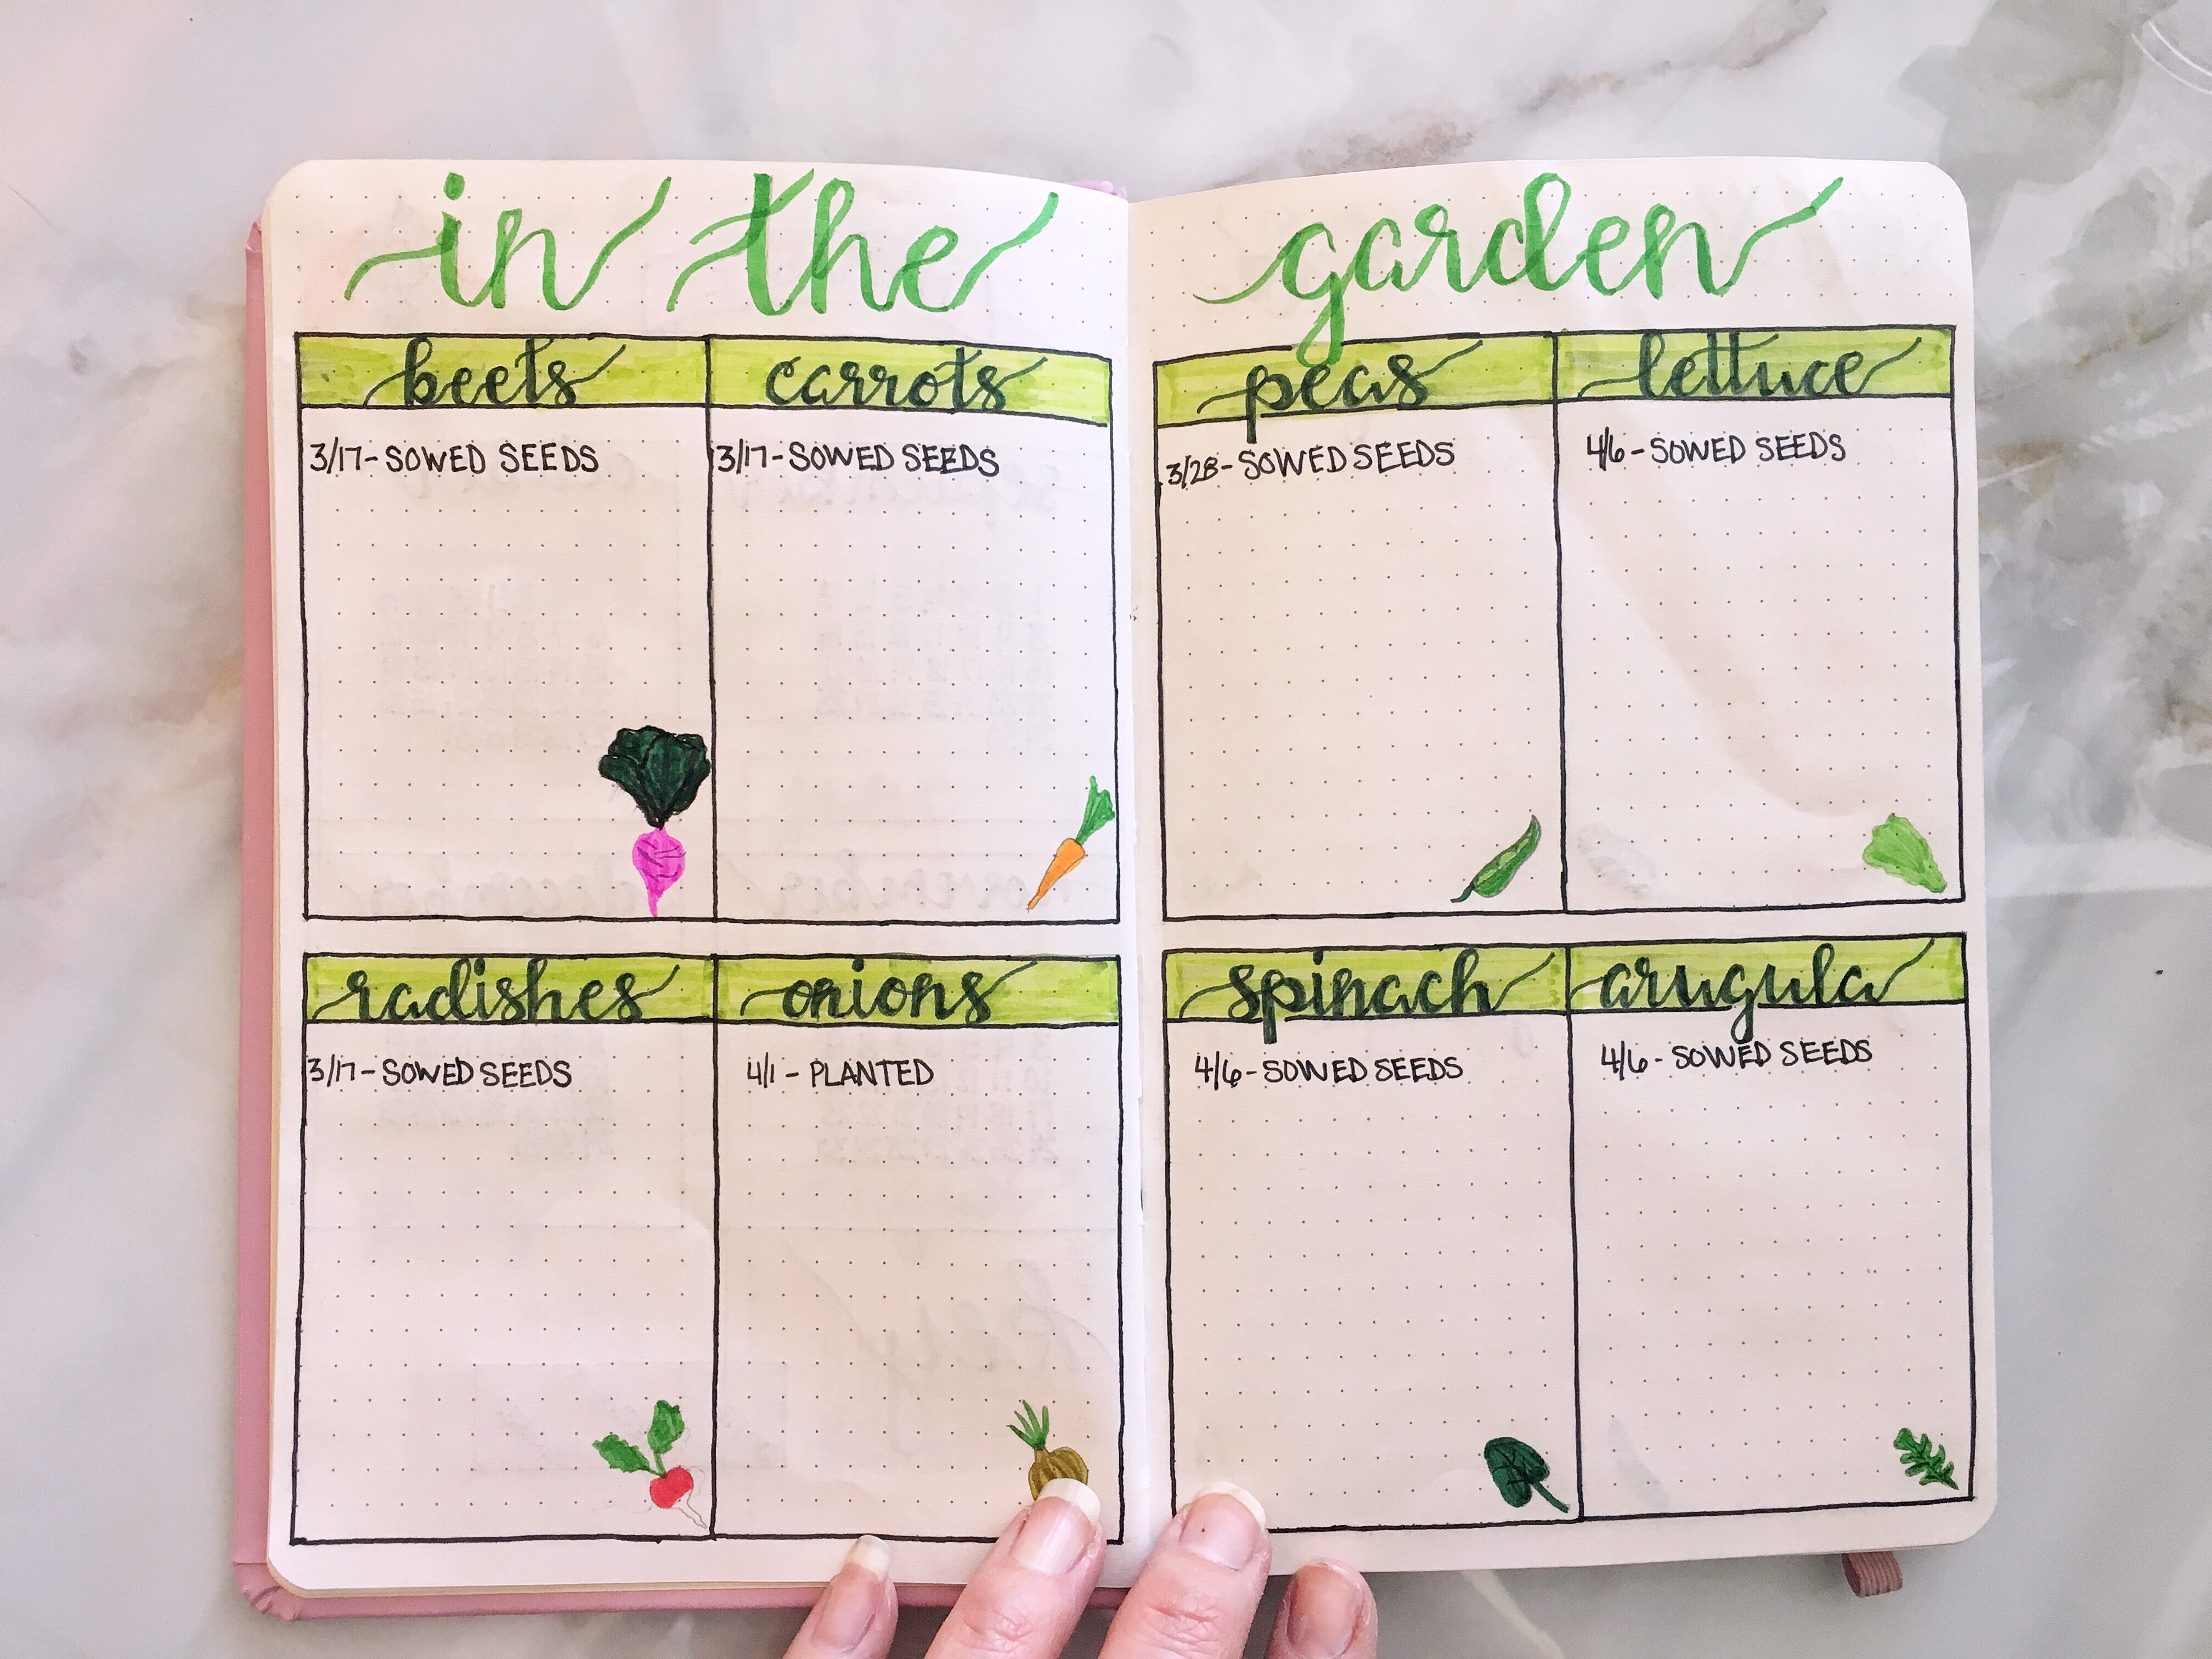 in the garden
beets
3/17 - SOWED SEEDS
carrots
3/17 - SOWED SEEDS
radishes
3/17 - SOWED SEEDS
onions
4/1 - PLANTED
peas
3/28 - SOWED SEEDS
lettuce
4/6 - SOWED SEEDS
spinach
4/6 - SOWED SEEDS
arugula
4/6 - SOWED SEEDS